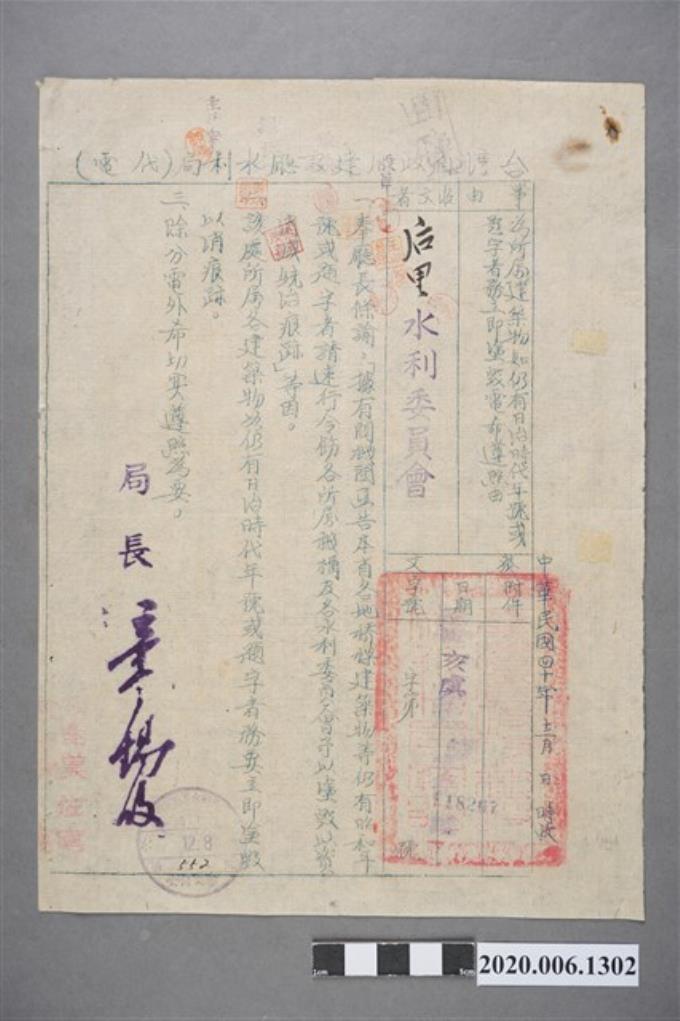 台灣省政府建設廳水利局(代電)
事由
為所屬建築物如仍有日治時代年號或
題字者務立即塗毀電希遵照由
收文者
后里水利委員會
中華民國四十年十二月 日 時收
發附件
日期
文字號
字第
118267
號
一、奉廳長條諭:「據有關機關呈告本省各地橋樑建築物等仍有昭和年
號或題字者請速行令飭各所屬機構及各水利委員會予以塗毀以資
消滅統治痕跡」等因。
二、該處所屬各建築物如仍有日治時代年號或題字者務要立即塗毀
以消痕跡。
三、除分電外希切實遵照為要。
局長
章錫綬
12.8
552
2020.006.1302